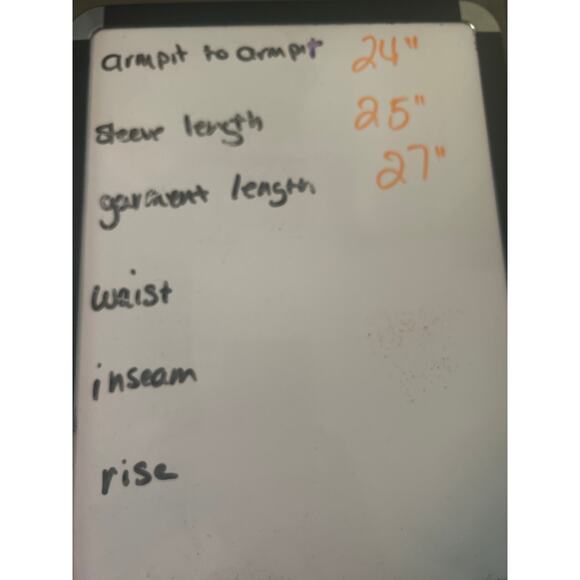 armpit to armpit 24"
sleeve length 25"
garment length 27"
waist
inseam
rise